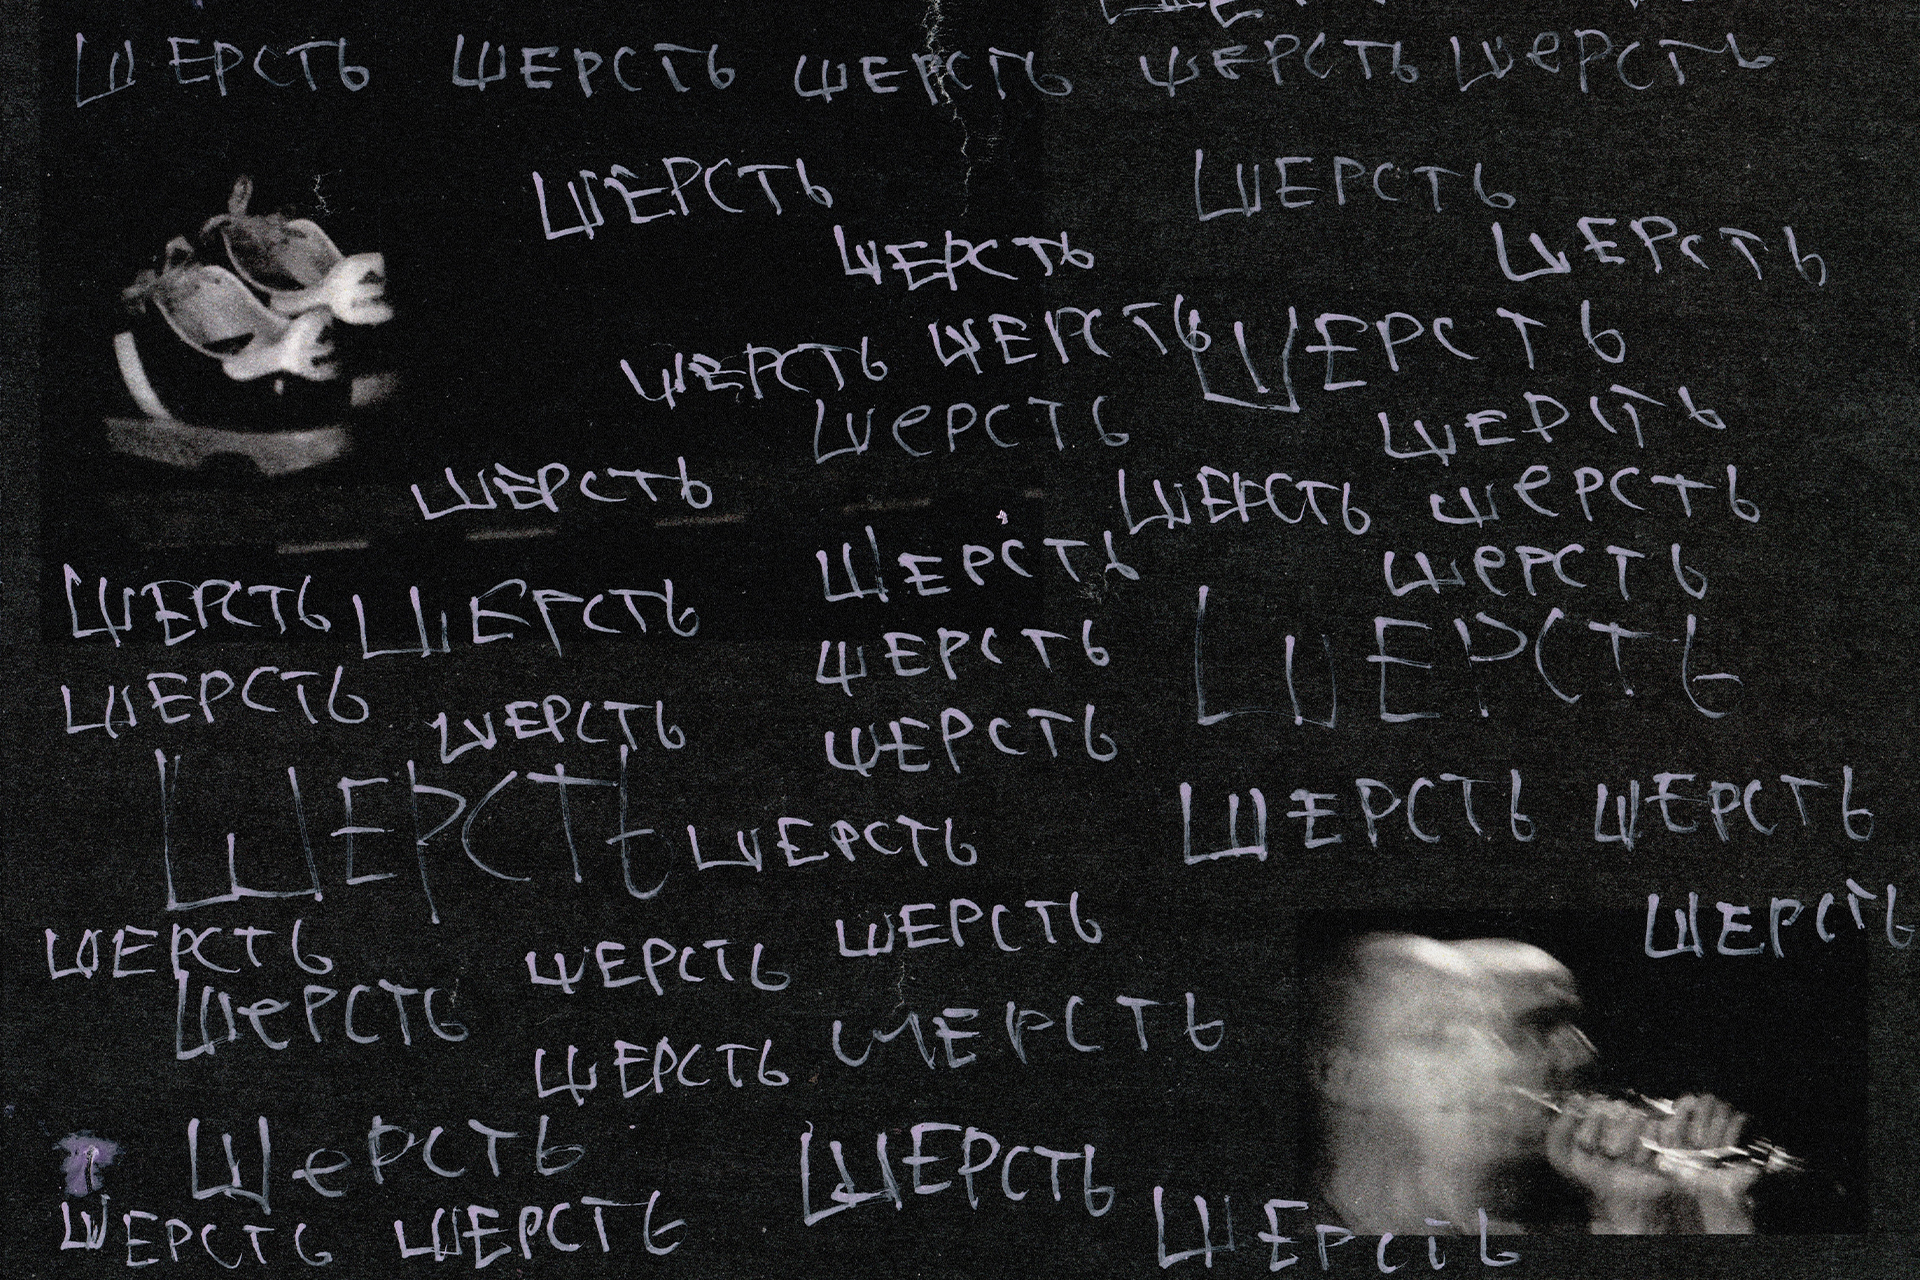 ШЕРСТЬ ШЕРСТЬ ШЕРСТЬ ШЕРСТЬ ШеРСТЬ
ШЕРСТЬ ШЕРСТЬ
ШЕРСТЬ ШЕРСТЬ
ШЕРСТЬ ШЕРСТЬ ШЕРСТЬ
ШеРСТЬ ШЕРСТЬ
ШЕРСТЬ ШЕРСТЬ ШеРСТЬ
ШЕРСТЬ ШеРСТЬ
ШЕРСТЬ ШЕРСТЬ
ШЕРСТЬ ШЕРСТЬ
ШЕРСТЬ ШЕРСТЬ ШЕРСТЬ
ШЕРСТЬ ШЕРСТЬ ШЕРСТЬ ШЕРСТЬ
ШЕРСТЬ ШЕРСТЬ ШЕРСТЬ ШЕРСТЬ
ШеРСТЬ ШЕРСТЬ
ШЕРСТЬ
ШеРСТЬ ШЕРСТЬ
ШЕРСТЬ ШЕРСТЬ ШЕРСТЬ